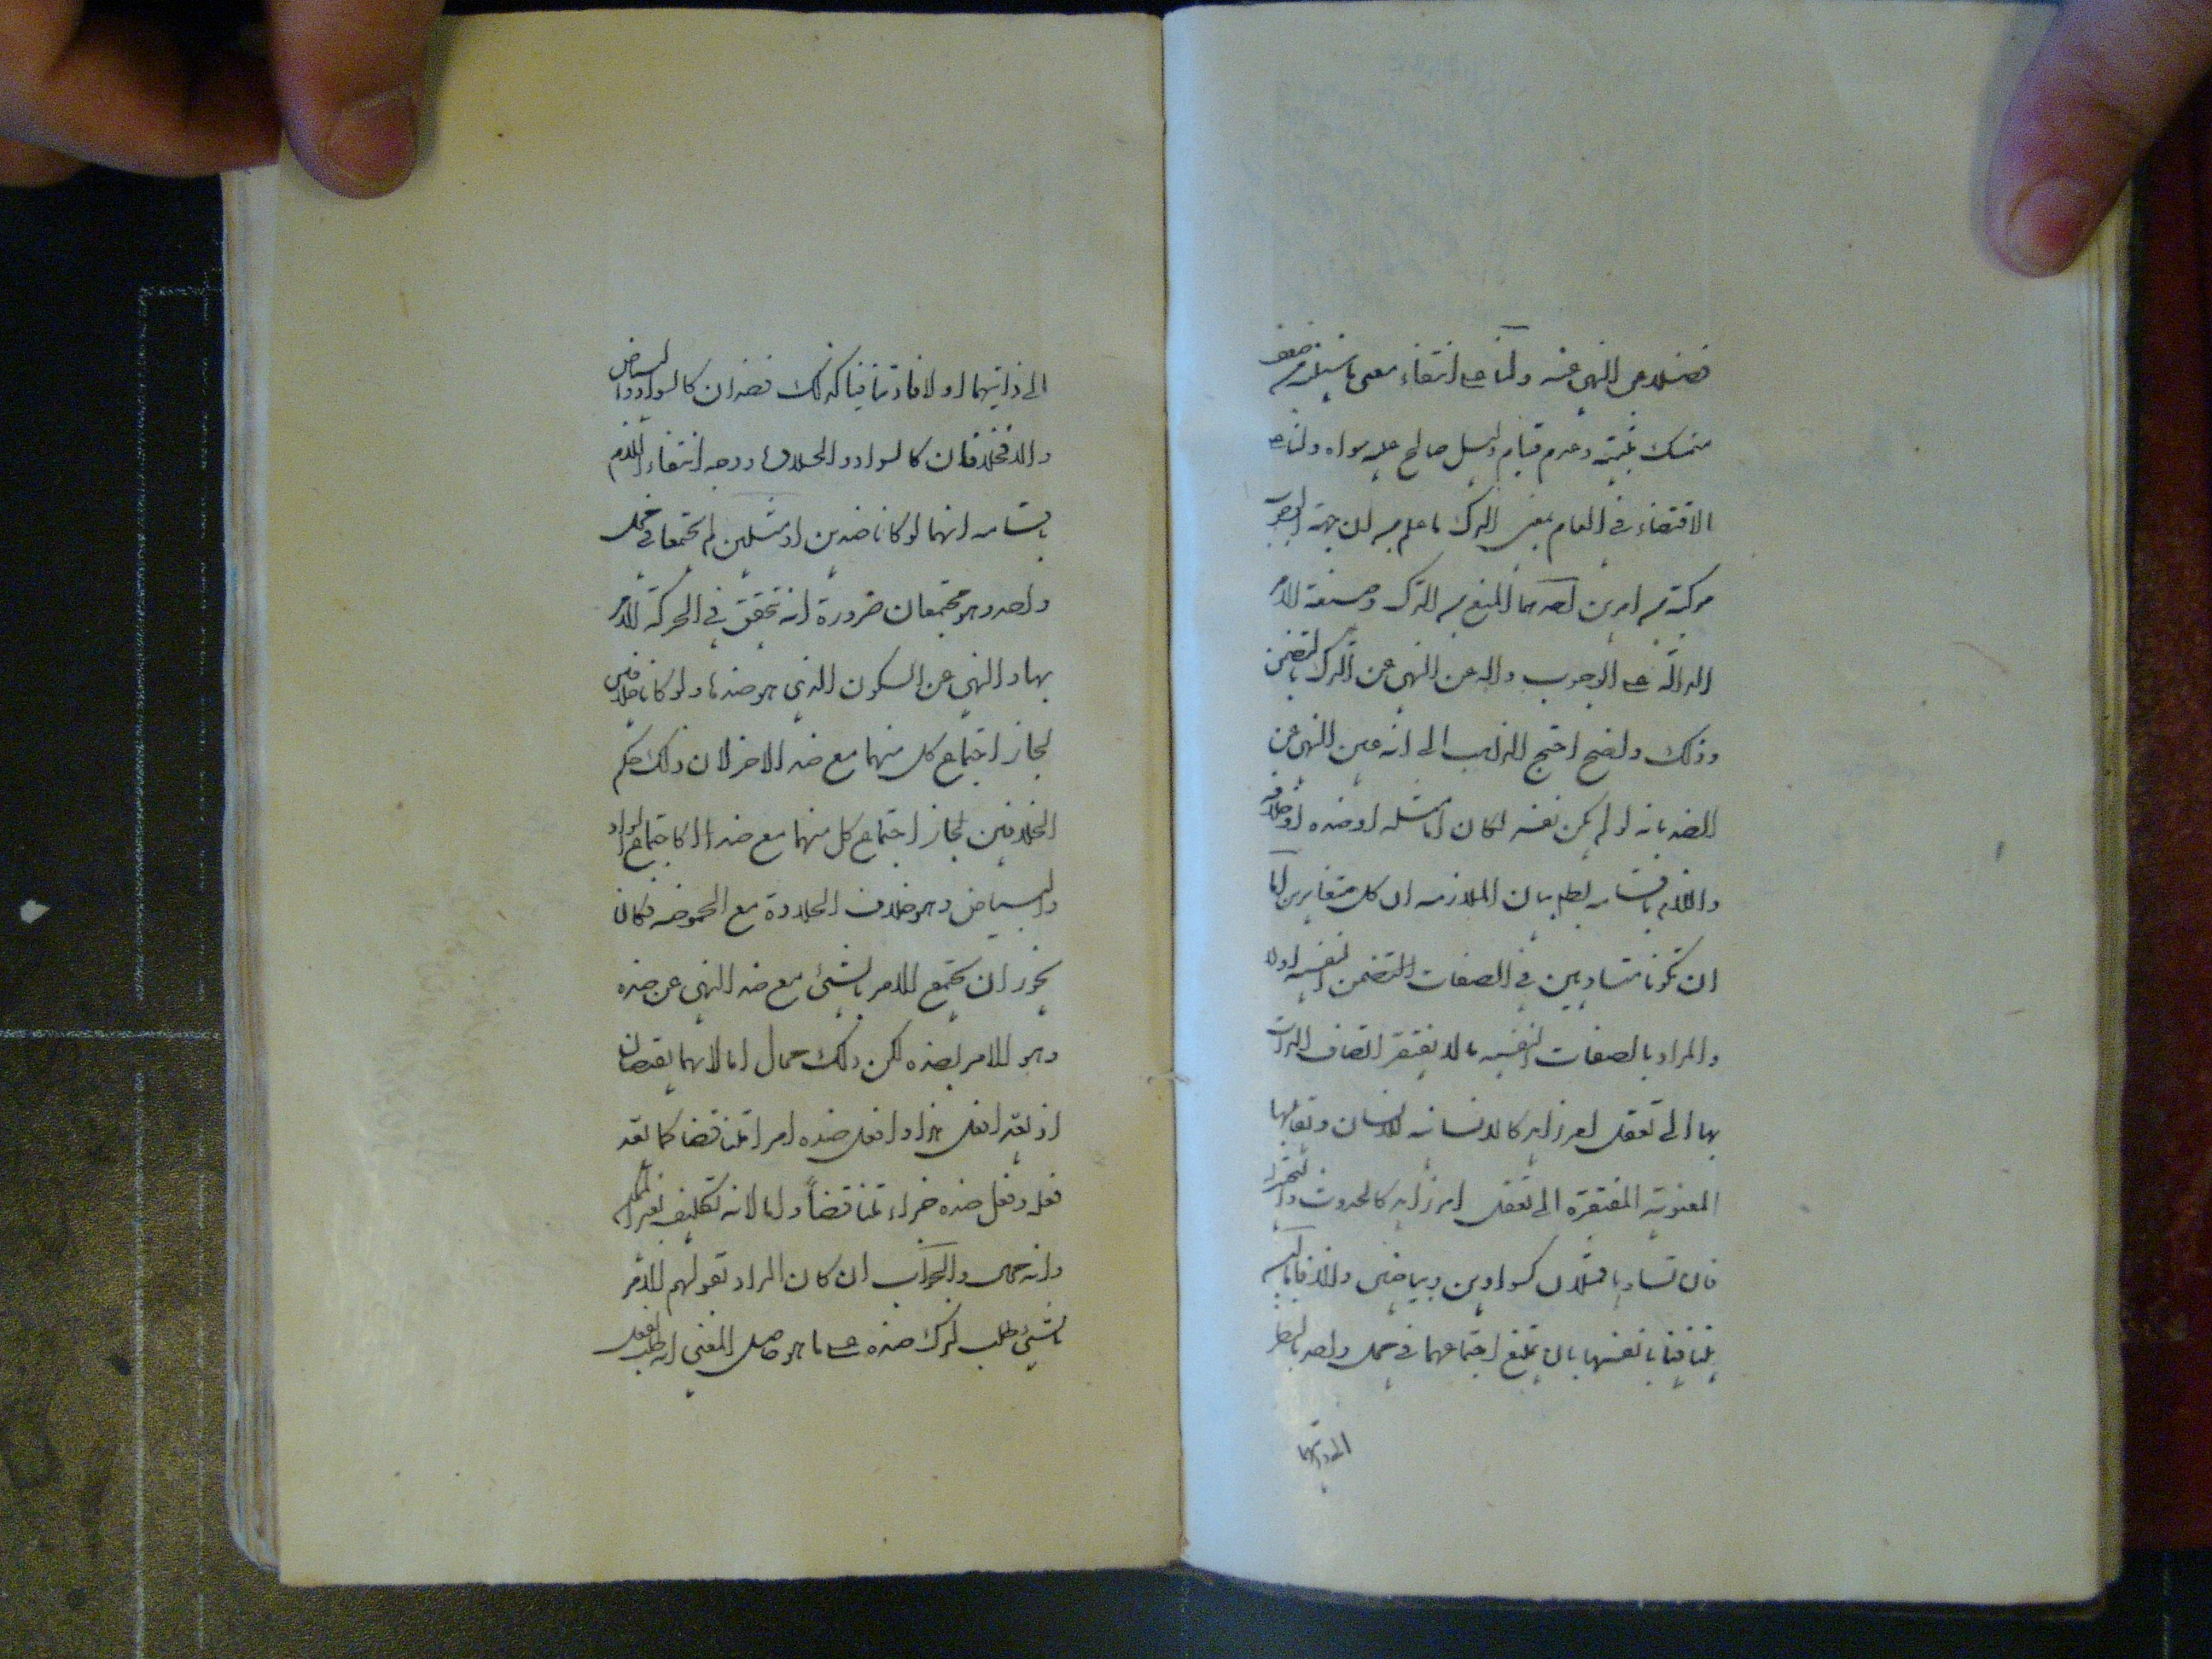 فضلا عن النهي عنه ولنا على انتفاء معنى ما سنبينه من ضعف
متمسك مثبتيه وعدم قيام دليل صالح عليه سواه ولنا على
الاقتضاء في العام بمعنى الترك ما علم من ان مهية الوجوب
مركبة من امرين احدهما المنع من الترك وصيغة الامر
الدالة على الوجوب دالة عن النهي عن الترك بالتضمن
وذلك واضح احتج الذاهب الى انه عين النهي عن
الضد بانه لو لم يكن نفسه لكان اما مثله او ضده او خلافه
واللازم باقسامه باطل بيان الملازمة ان كل متغايرين اما
ان يكونا متساويين في الصفات النفسية اولا
والمراد بالصفات النفسية ما لا يفتقر اتصاف الذات
بها الى تعقل امر زايد كالانسانية للانسان وتقابلها
المعنوية المفتقرة الى تعقل امر زايد كالحدوث والتحيز
فان تساويا فمثلان كسوادين وبياضين والا فاما ان
يتنافيا بانفسهما بان يمتنع اجتماعهما في محل واحد بالنظر
الى ذاتيهما
الى ذاتيهما اولا فان تنافيا كذلك فضدان كالسواد والبياض
والا فخلافان كالسواد والحلاوة ووجه انتفاء اللازم
باقسامه انهما لو كانا ضدين او مثلين لم يجتمعا في محل
واحد وهو مجتمعان ضرورة انه يتحقق في الحركة الامر
بها والنهي عن السكون الذي هو ضدها ولو كانا خلافين
لجاز اجتماع كل منهما مع ضد الاخر لان ذلك حكم
الخلافين لجاز اجتماع كل منهما مع ضد كاجتماع السواد
والبياض وهو خلاف الحلاوة مع الحموضة فكان
يجوز ان يجتمع الامر بالشيء مع ضد النهي عن ضده
وهو الامر بضده لكن ذلك محال اما لانهما نقيضان
اذ يعد افعل هذا وافعل ضده امرا متناقضا كما يعد
فعله وفعل ضده خبرا متناقضاً واما لانه تكليف بغير الممكن
وانه محال والجواب ان كان المراد بقولهم الامر
بالشيء طلب لترك ضده على ما هو حاصل المعنى انه طلب لفعل